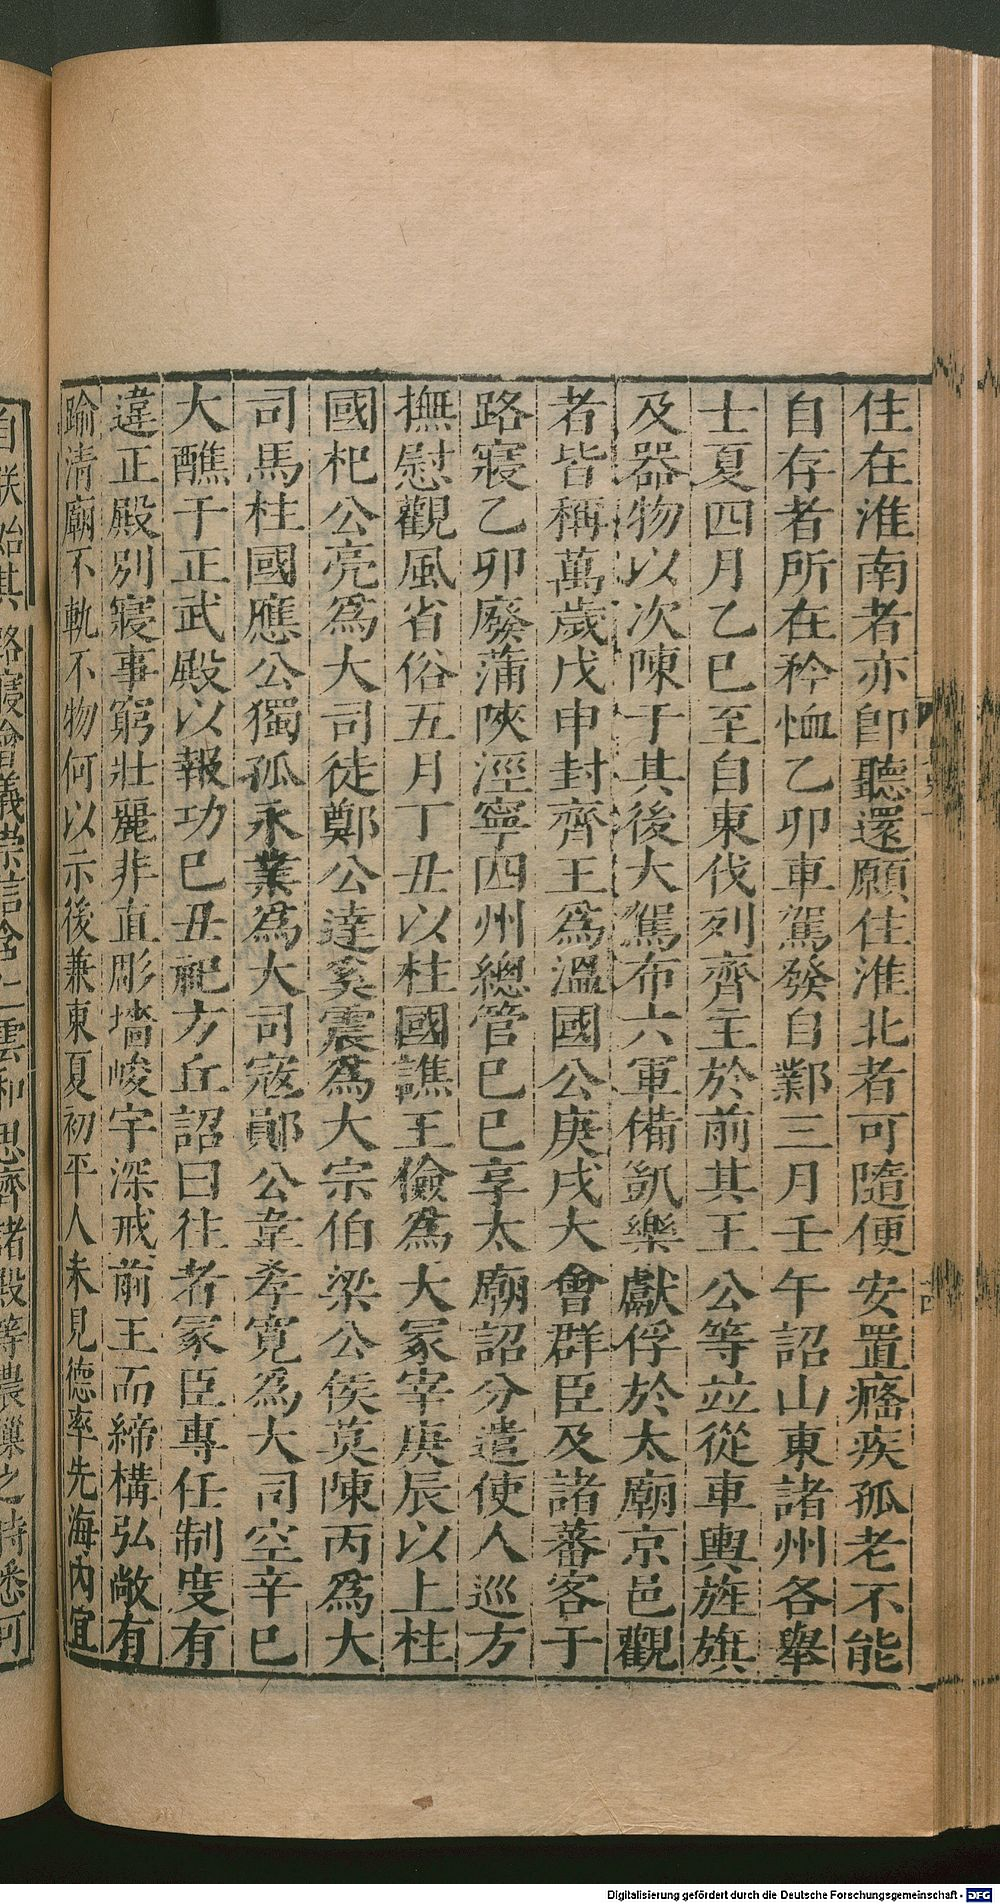 住在淮南者亦卽聽還願住淮北者可隨便安置癃疾孤老不能
自存者所在矜恤乙卯車駕發自鄴三月壬午詔山東諸州各舉
士夏四月乙巳至自東伐列齊主於前其王公等竝從車輿旌旗
及器物以次陳于其後大駕布六軍備凱樂獻俘於太廟京邑觀
者皆稱萬歲戊申封齊王爲溫國公庚戌大會群臣及諸蕃客于
路寢乙卯廢蒲陝涇寧四州總管巳巳享太廟詔分遣使人巡方
撫慰觀風省俗五月丁丑以柱國譙王儉爲大冢宰庚辰以上柱
國杞公亮爲大司徒鄭公達奚震爲大宗伯梁公侯莫陳芮爲大
司馬柱國應公獨孤永業爲大司寇鄖公韋孝寬爲大司空辛巳
大醮于正武殿以報功巳丑祀方丘詔曰往者冢臣專任制度有
違正殿別寢事窮壯麗非直彫墻峻宇深戒前王而締構弘敞有
踰清廟不軌不物何以示後兼東夏初平人未見德率先海內宜
自朕始其路寢會義崇信含仁雲和思齊諸殿等農隙之時悉可
Digitalisierung gefördert durch die Deutsche Forschungsgemeinschaft - DFG